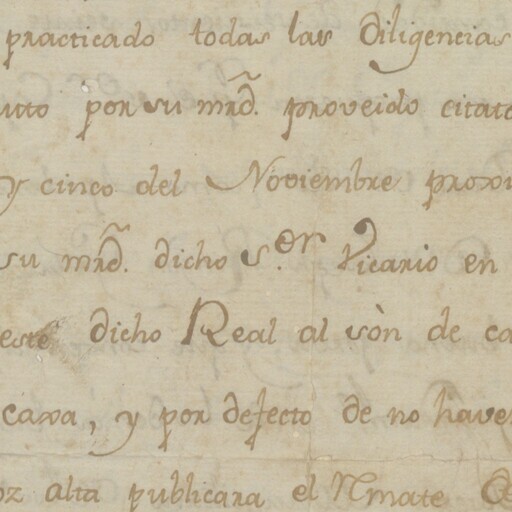 practicado todas las diligencias
utto por su mrd̃. proveido citat
y cinco del Noviembre proxi
su mrd̃. dicho S.or Vicario en
este dicho Real al sòn de ca
caxa, y por defecto de no haver
oz alta publicara el Rmate